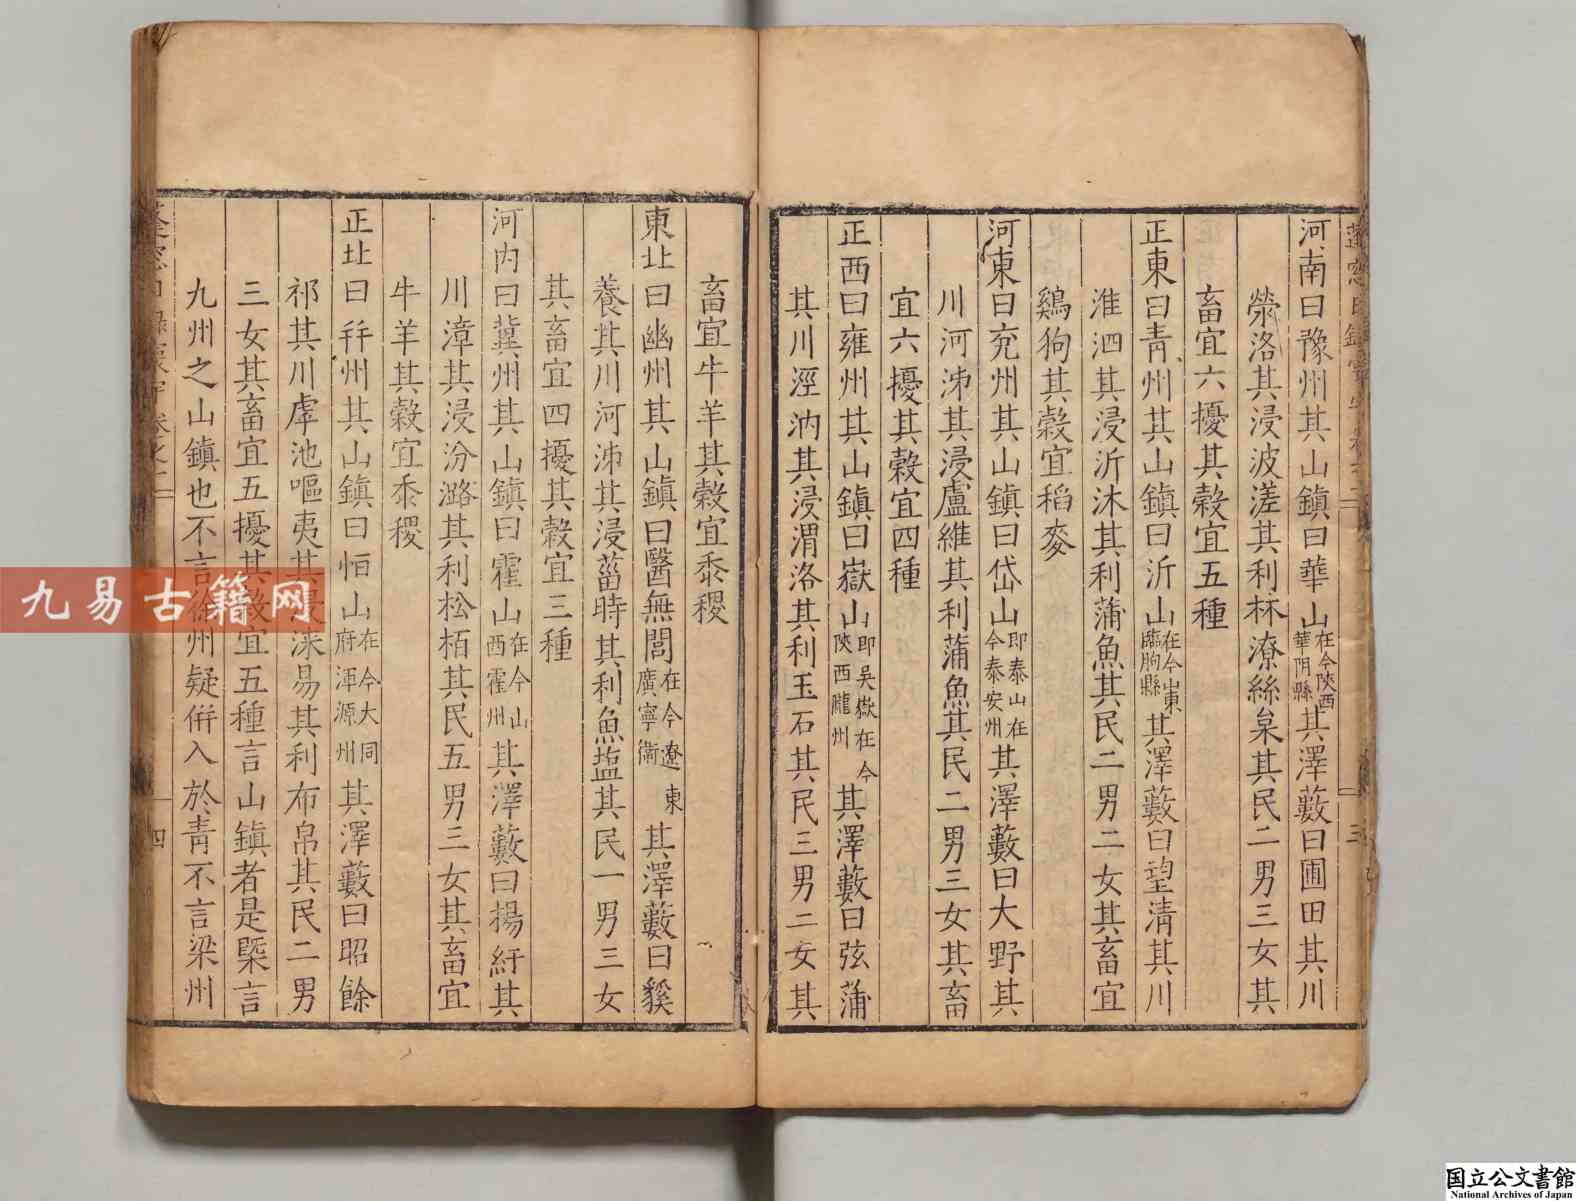 河南曰豫州其山鎮曰華山在今陜西華隂縣其澤藪曰圃田其川
滎洛其浸波溠其利林漆絲枲其民二男三女其
畜宜六擾其穀宜五種
正東曰青州其山鎮曰沂山在今山東臨朐縣其澤藪曰望淸其川
淮泗其浸沂沐其利蒲魚其民二男二女其畜宜
鷄狗其穀宜稻麥
河東曰兖州其山鎮曰岱山即泰山在今泰安州其澤藪曰大野其
川河泲其浸盧維其利蒲魚其民二男三女其畜
宜六擾其穀宜四種
正西曰雍州其山鎮曰嶽山即吳嶽在今陜西隴州其澤藪曰弦蒲
其川涇汭其浸渭洛其利玉石其民三男二女其
畜宜牛羊其穀宜黍稷
東北曰幽州其山鎮曰醫無閭在今遼東廣寧衛其澤藪曰貕
養其川河泲其浸菑時其利魚塩其民一男三女
其畜宜四擾其穀宜三種
河内曰冀州其山鎮曰霍山在今山西霍州其澤藪曰揚紆其
川漳其浸汾潞其利松栢其民五男三女其畜宜
牛羊其穀宜黍稷
正北曰并州其山鎮曰恒山在今大同府渾源州其澤藪曰昭餘
祁其川虖池嘔夷其浸淶易其利布帛其民二男
三女其畜宜五擾其穀宜五種言山鎮者是槩言
九州之山鎮也不言徐州疑併入於靑不言梁州
三
四
九易古籍网
国立公文書館
National Archives of Japan